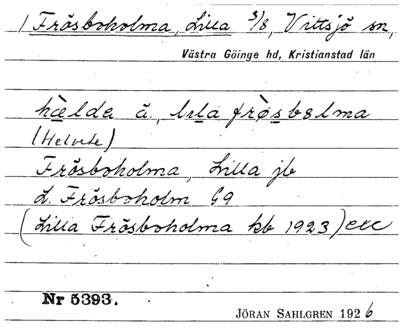 1 Frösboholma, Lilla 3/8, Vittsjö sn,
Västra Göinge hd, Kristianstad län
hæ̀lda å, lıla frø̀sbɷlma
(Helvete)
Frösboholma, Lilla jb
L. Frösboholm G9
(Lilla Frösboholma kb 1923) etc
Nr 5393.
JÖRAN SAHLGREN 1926